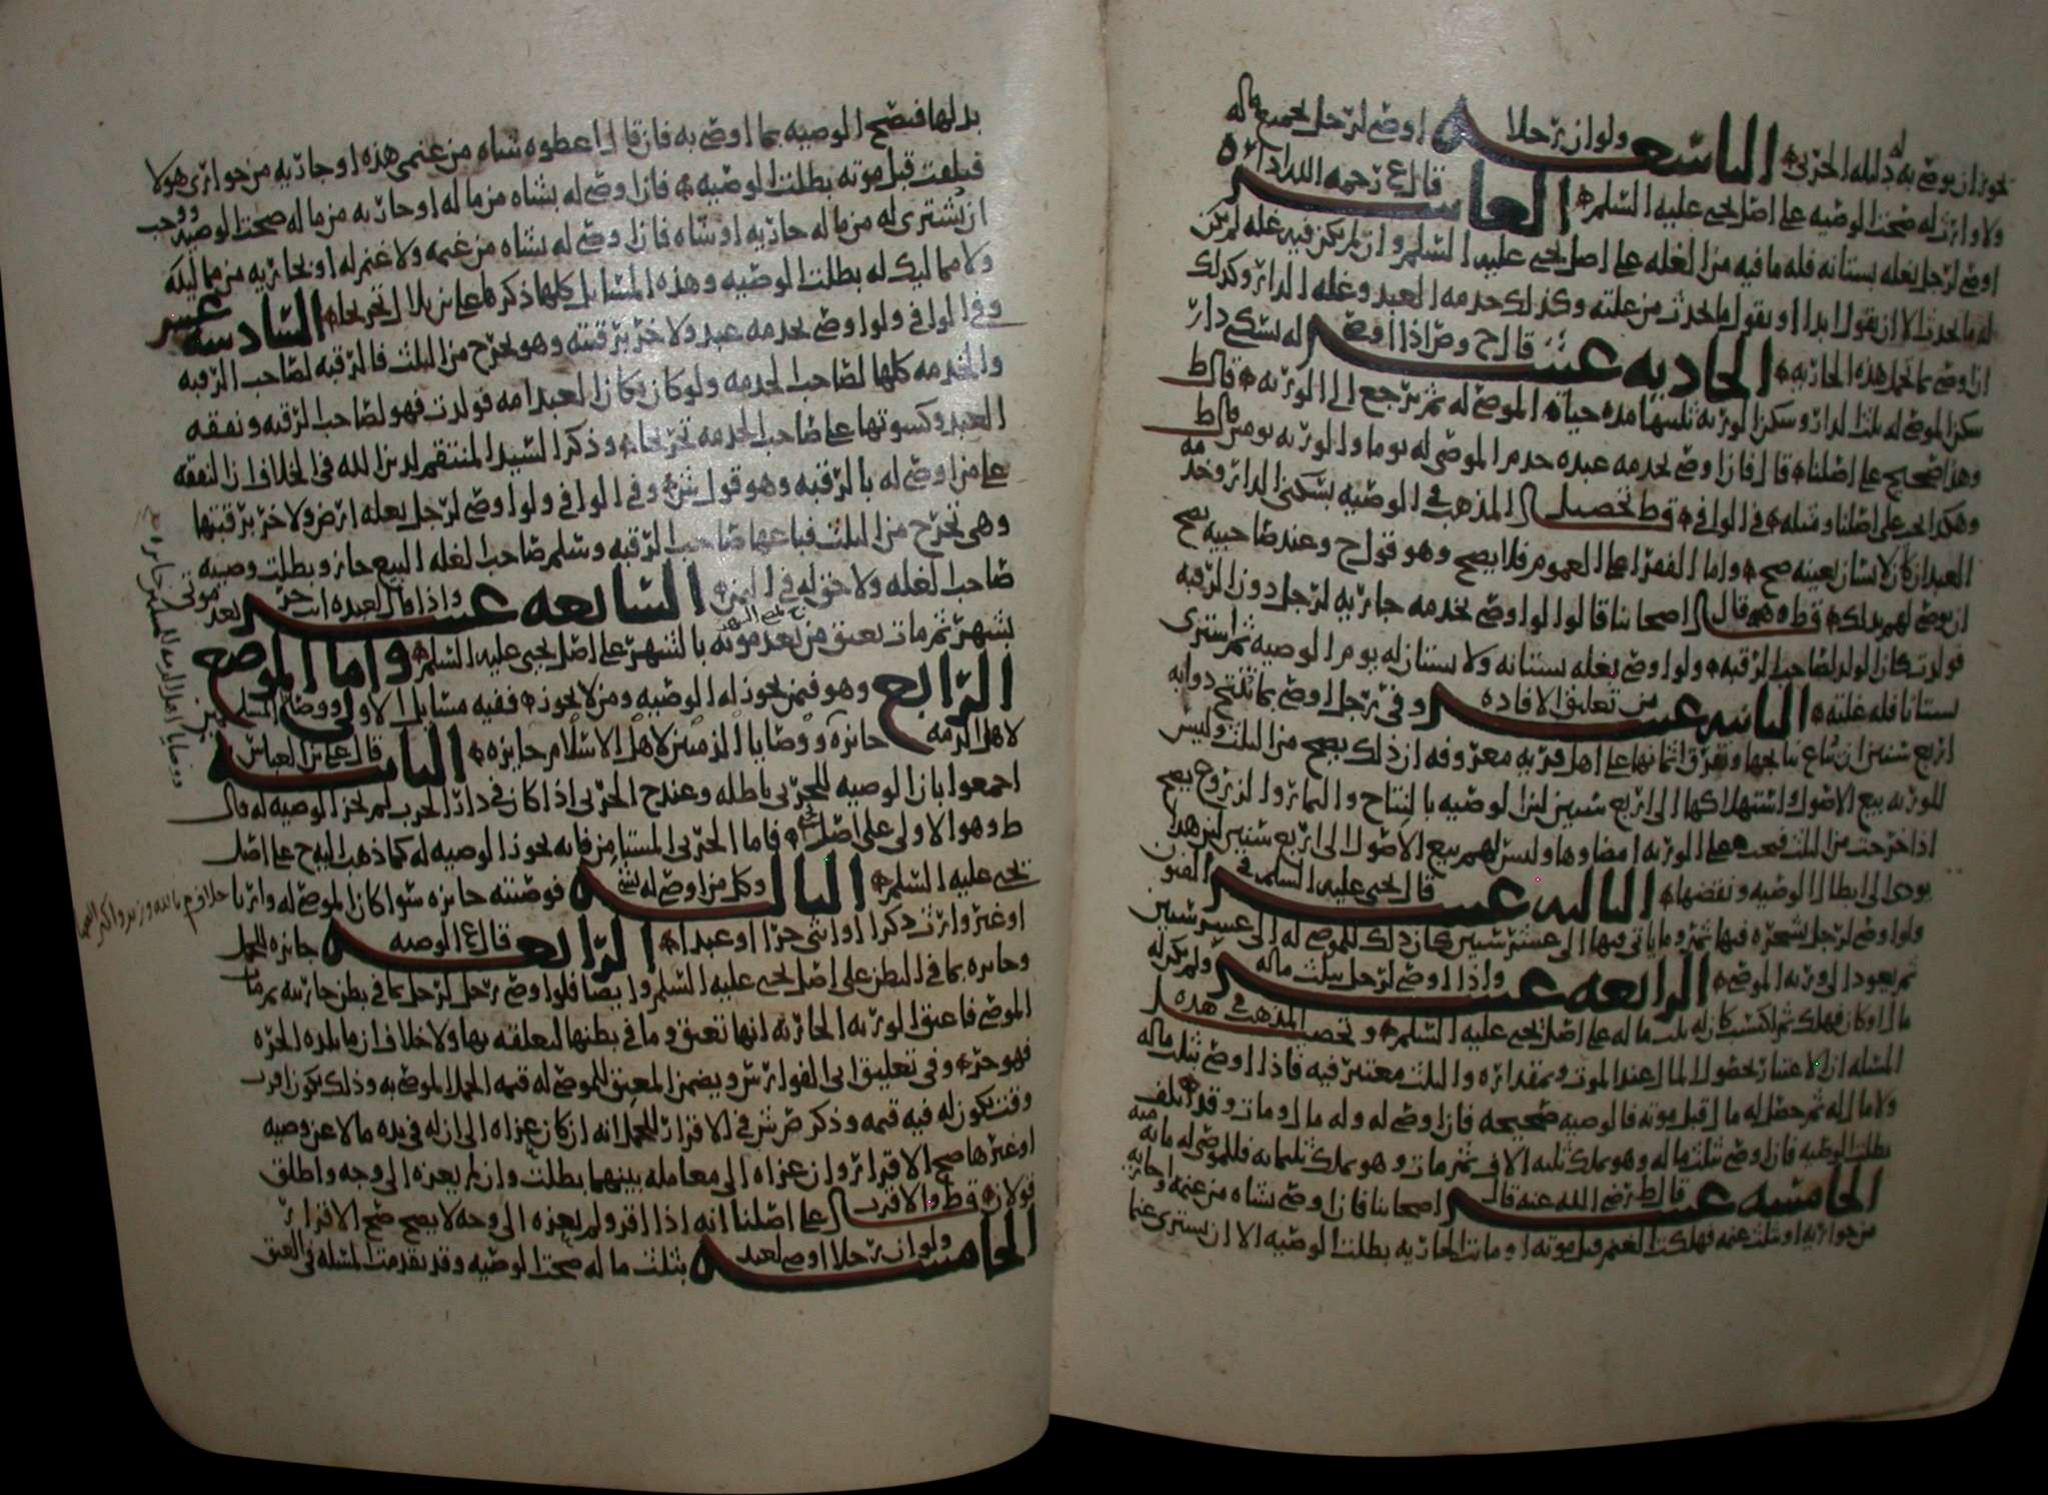 يجوز ان يوصي به دليله الحربي التاسعه ولو ان رجلا اوصى لرجل بجميع ماله
ولا وارث له صحت الوصيه على اصل يحيى عليه السلم العاشره قال ع رحمه الله اذا
اوصى لرجل بغله بستانه فله ما فيه من الغله على اصل يحيى عليه السلم وان لم يكن فيه غله لم يكن
له ما يحدث الا ان يقول ابدا او يقول ما يحدث من غلته وكذلك خدمه العبد وغله الدار وكذلك
ان اوصى بما تحمل هذه الجاريه الحاديه عشر قال ح وص اذا اوصى له بسكنى دار
سكن الموصى له ثلث الدار وسكن الورثه ثلثيها مده حياه الموصى له ثم يرجع الى الورثه قال ط
وهذا صحيح على اصلنا قال فان اوصى بخدمه عبده خدم الموصى له يوما والورثه يومين قال ط
وهكذا يجي على اصلنا ومثله في الوافي قط تحصيل المذهب في الوصيه بسكنى الدار وخدمه
العبد ان كان لانسان بعينه صح واما الفقرا على العموم فلا يصح وهو قول ح وعند صاحبيه يصح
ان يوصي لهم بذلك قط وهو قال اصحابنا قالوا لو اوصى بخدمه جاريه لرجل دون الرقبه
فولدت كان الولد لصاحب الرقبه ولو اوصى بغله بستانه ولا بستان له يوم الوصيه ثم اشترى
بستانا فله غلته الثانيه عشر من تعليق الافاده وفي رجل اوصى بما تنتج دوابه
اربع سنين ان تباع نتايجها وتفرق اثمانها على اهل قريه معروفه ان ذلك يصح من الثلث وليس
للورثه بيع الاصول واستهلاكها الى اربع سنين لان الوصيه بالنتاح والثمار والزروع يصح
اذا خرجت من الثلث فيجب على الورثه امضاوها وليس لهم بيع الاصول الى اربع سنين لان هذا
يودي الى ابطال الوصيه ونقضها الثالثه عشر قال يحيى عليه السلم في الفنون
ولو اوصى لرجل بشجره فيها ثمر وما ياتي فيها الى عشر سنين كان ذلك للموصى له الى عشر سنين
ثم يعود الى ورثه الموصي الرابعه عشر واذا اوصى لرجل بثلث ماله ولم يكن له
مال او كان فهلك ثم اكتسب كان له ثلث ماله على اصل يحيى عليه السلم وتحصيل المذهب في هذه
المسله ان الاعتبار بحضول المال عند الموت وبمقداره والثلث معتبر فيه فاذا اوصى بثلث ماله
ولا مال له ثم حصل له مال قبل موته فالوصيه صحيحه فان اوصى له وله مال ومات وقد تلف
بطلت الوصيه فان اوصى بثلث ماله وهو يملك ثلثه الاف ثم مات وهو يملك ثلثمايه فللموصى له مايه
الخامسه عشر قال ط رضي الله عنه قال اصحابنا فان اوصى بشاه من غنمه او جاريه
من جواريه او بثلث غنمه فهلكت الغنم قبل موته او ماتت الجاريه بطلت الوصيه الا ان يشتري غنما
بدلها فتصح الوصيه بما اوصى به فان قال اعطوه شاه من غنمي هذه او جاريه من جواري هولا
فتلفت قبل موته بطلت الوصيه فان اوصى له بشاه من ماله او جاريه من ماله صحت الوصيه ووجب
ان يشترى له من ماله جاريه او شاه فان اوصى له بشاه من غنمه ولا غنم له او بجاريه من مماليكه
ولا مماليك له بطلت الوصيه وهذه المسايل كلها ذكرها علي بن بلال تخريجا السادسه عشر
وفي الوافي ولو اوصى بخدمه عبد ولاخر برقبته وهو يخرج من الثلث فالرقبه لصاحب الرقبه
والخدمه كلها لصاحب الخدمه ولو كان مكان العبد امه فولدت فهو لصاحب الرقبه ونفقه
العبد وكسوتها على صاحب الخدمه تخريجا وذكر السيد المنتقم لدين الله في الخلاف ان النفقه
على من اوصى له بالرقبه وهو قول ش وفي الوافي ولو اوصى لرجل بغله ارض ولاخر برقبتها
وهي تخرج من الثلث فباعها صاحب الرقبه وسلم صاحب الغله البيع جاز وبطلت وصيه
صاحب الغله ولا حق له في الثمن السابعه عشر واذا قال لعبده انت حر بعد موتي
بشهر ثم مات يعتق من بعد موته بالشهر على اصل يحيى عليه السلم واما الموضع
الرابع وهو فيمن يجوز له الوصيه ومن لا يجوز ففيه مسايل الاولى ووصايا المسلمين
لاهل الذمه جائزه ووصايا الذميين لاهل الاسلام جايزه الثانيه قال علي بن العباس
اجمعوا بان الوصيه للحربي باطله وعند ح الحربي اذا كان في دار الحرب لم تجز الوصيه له قال
ط وهو الاولى على اصل يحيى فاما الحربي المستامن فانه يجوز الوصيه له كما ذهب اليه ح على اصل
يحيى عليه السلم الثالثه وكل من اوصى له بشي فوصيته جايزه سوا كان الموصى له وارثا
او غير وارث ذكرا او انثى حرا او عبدا الرابعه قال ع الوصيه جائزه للحمل
وجايزه بما في البطن على اصل يحيى عليه السلم وايضا فلو اوصى رجل لرجل بما في بطن جاريته ثم مات
الموصي فاعتق الورثه الجاريه انها تعتق وما في بطنها لتعلقه بها ولا خلاف ان ما تلده الحره
فهو حر وفي تعليق ابي الفوارس ويضمن المعتق للموصى له قيمه الحمل الموصى به وذلك يكون اقرب
وقت يكون له فيه قيمه وذكر ص ش في الاقرار للحمل انه ان كان عزاه الى ان له في يده مالا عن وصيه
او غيرها صح الاقرار وان عزاه الى معامله بينهما بطلت وان لم يعزه الى وجه واطلق
قولان قط والاقرب على اصلنا انه اذا اقر ولم يعزه الى وجه لا يصح صح الاقرار
الخامسه ولو ان رجلا اوصى لعبد بثلث ماله صحت الوصيه وقد تقدمت المسله في العتق